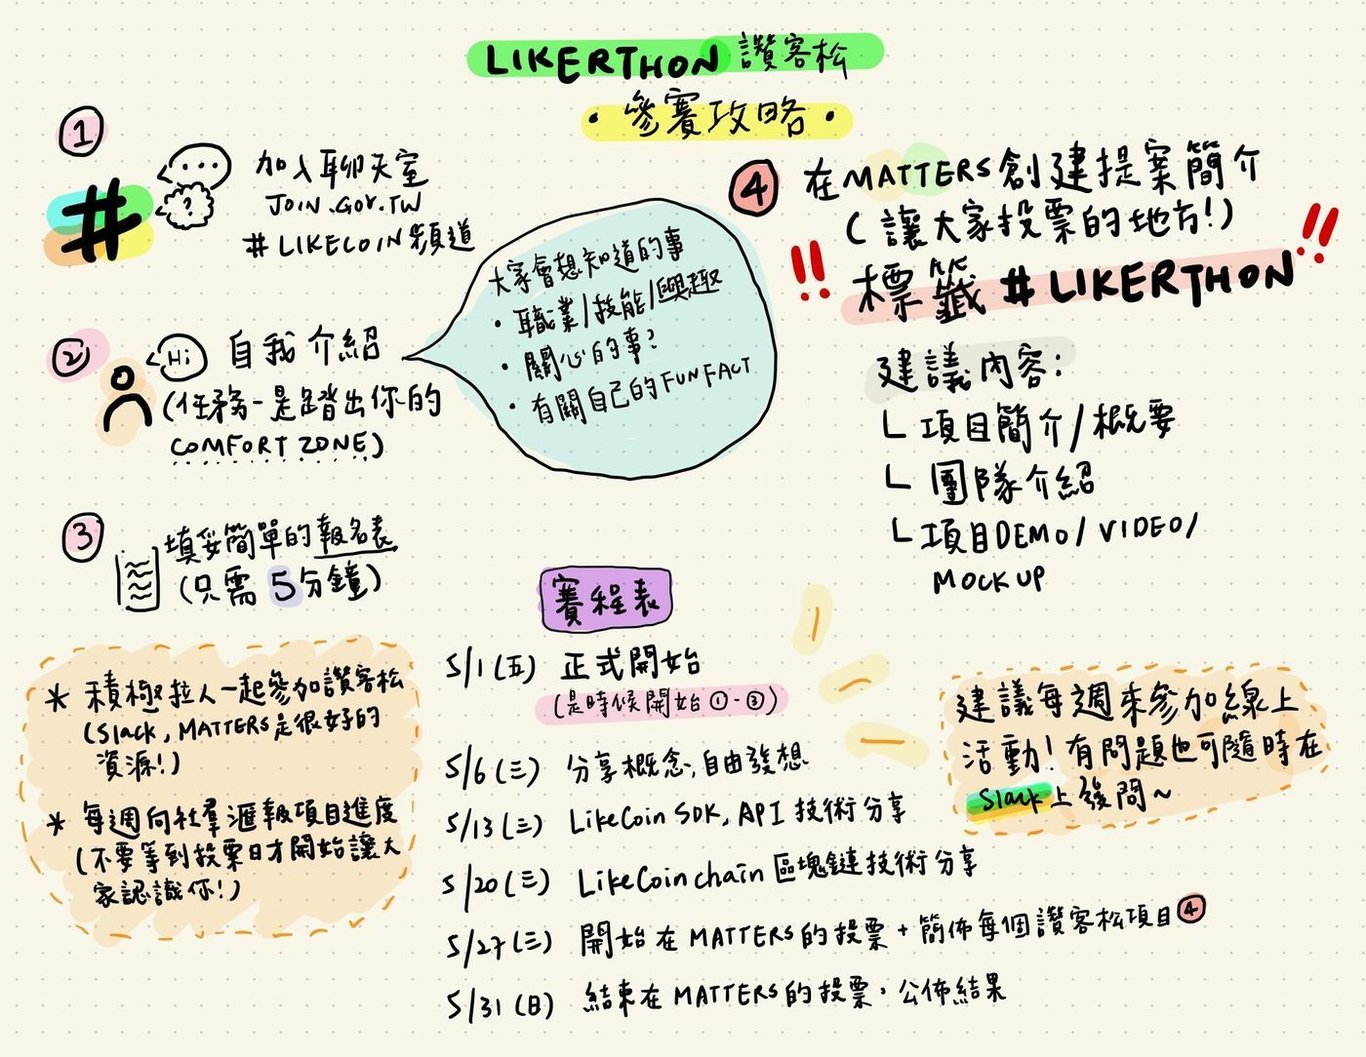 LIKERTHON 讚客松
・參賽攻略・
①
...
?
#
加入聊天室
JOIN.GOV.TW
#LIKECOIN頻道
②
Hi
自我介紹
(任務一是踏出你的
COMFORT ZONE)
大家會想知道的事
・職業/技能/興趣
・關心的事?
・有關自己的FUN FACT
③
填妥簡單的報名表
(只需5分鐘)
④
在MATTERS創建提案簡介
(讓大家投票的地方!)
!! 標籤 #LIKERTHON !!
建議內容:
└ 項目簡介/概要
└ 團隊介紹
└ 項目DEMO/VIDEO/
MOCKUP
* 積極拉人一起參加讚客松
(Slack, MATTERS是很好的
資源!)
* 每週向社羣滙報項目進度
(不要等到投票日才開始讓大
家認識你!)
賽程表
5/1(五) 正式開始
(是時候開始①-③)
5/6(三) 分享概念,自由發想
5/13(三) LikeCoin SDK, API 技術分享
5/20(三) LikeCoin chain 區塊鏈技術分享
5/27(三) 開始在MATTERS的投票+簡佈每個讚客松項目④
5/31(日) 結束在MATTERS的投票,公佈結果
建議每週來參加線上
活動!有問題也可隨時在
Slack上發問~